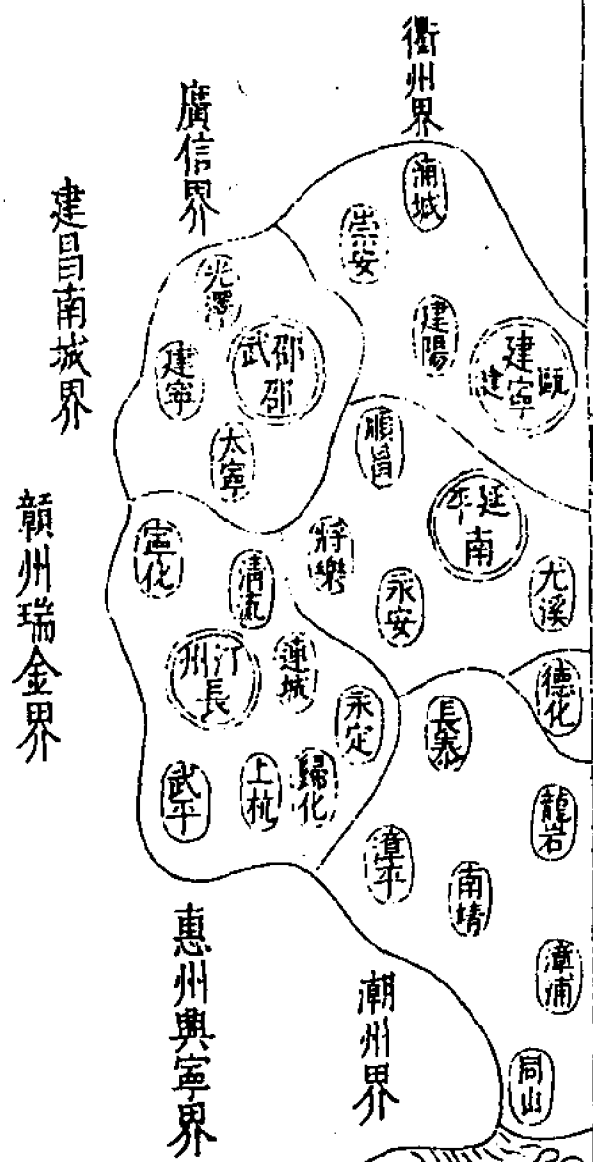 衢州界
廣信界
建昌南城界
贛州瑞金界
惠州興寧界
潮州界
浦城
崇安
建陽
建寧
甌
建
光澤
邵武
邵
建寧
太寧
順昌
延平
南
將樂
永安
尤溪
德化
寧化
清流
汀州
長
蓮城
永定
歸化
上杭
武平
長泰
龍岩
漳平
南靖
漳浦
同山